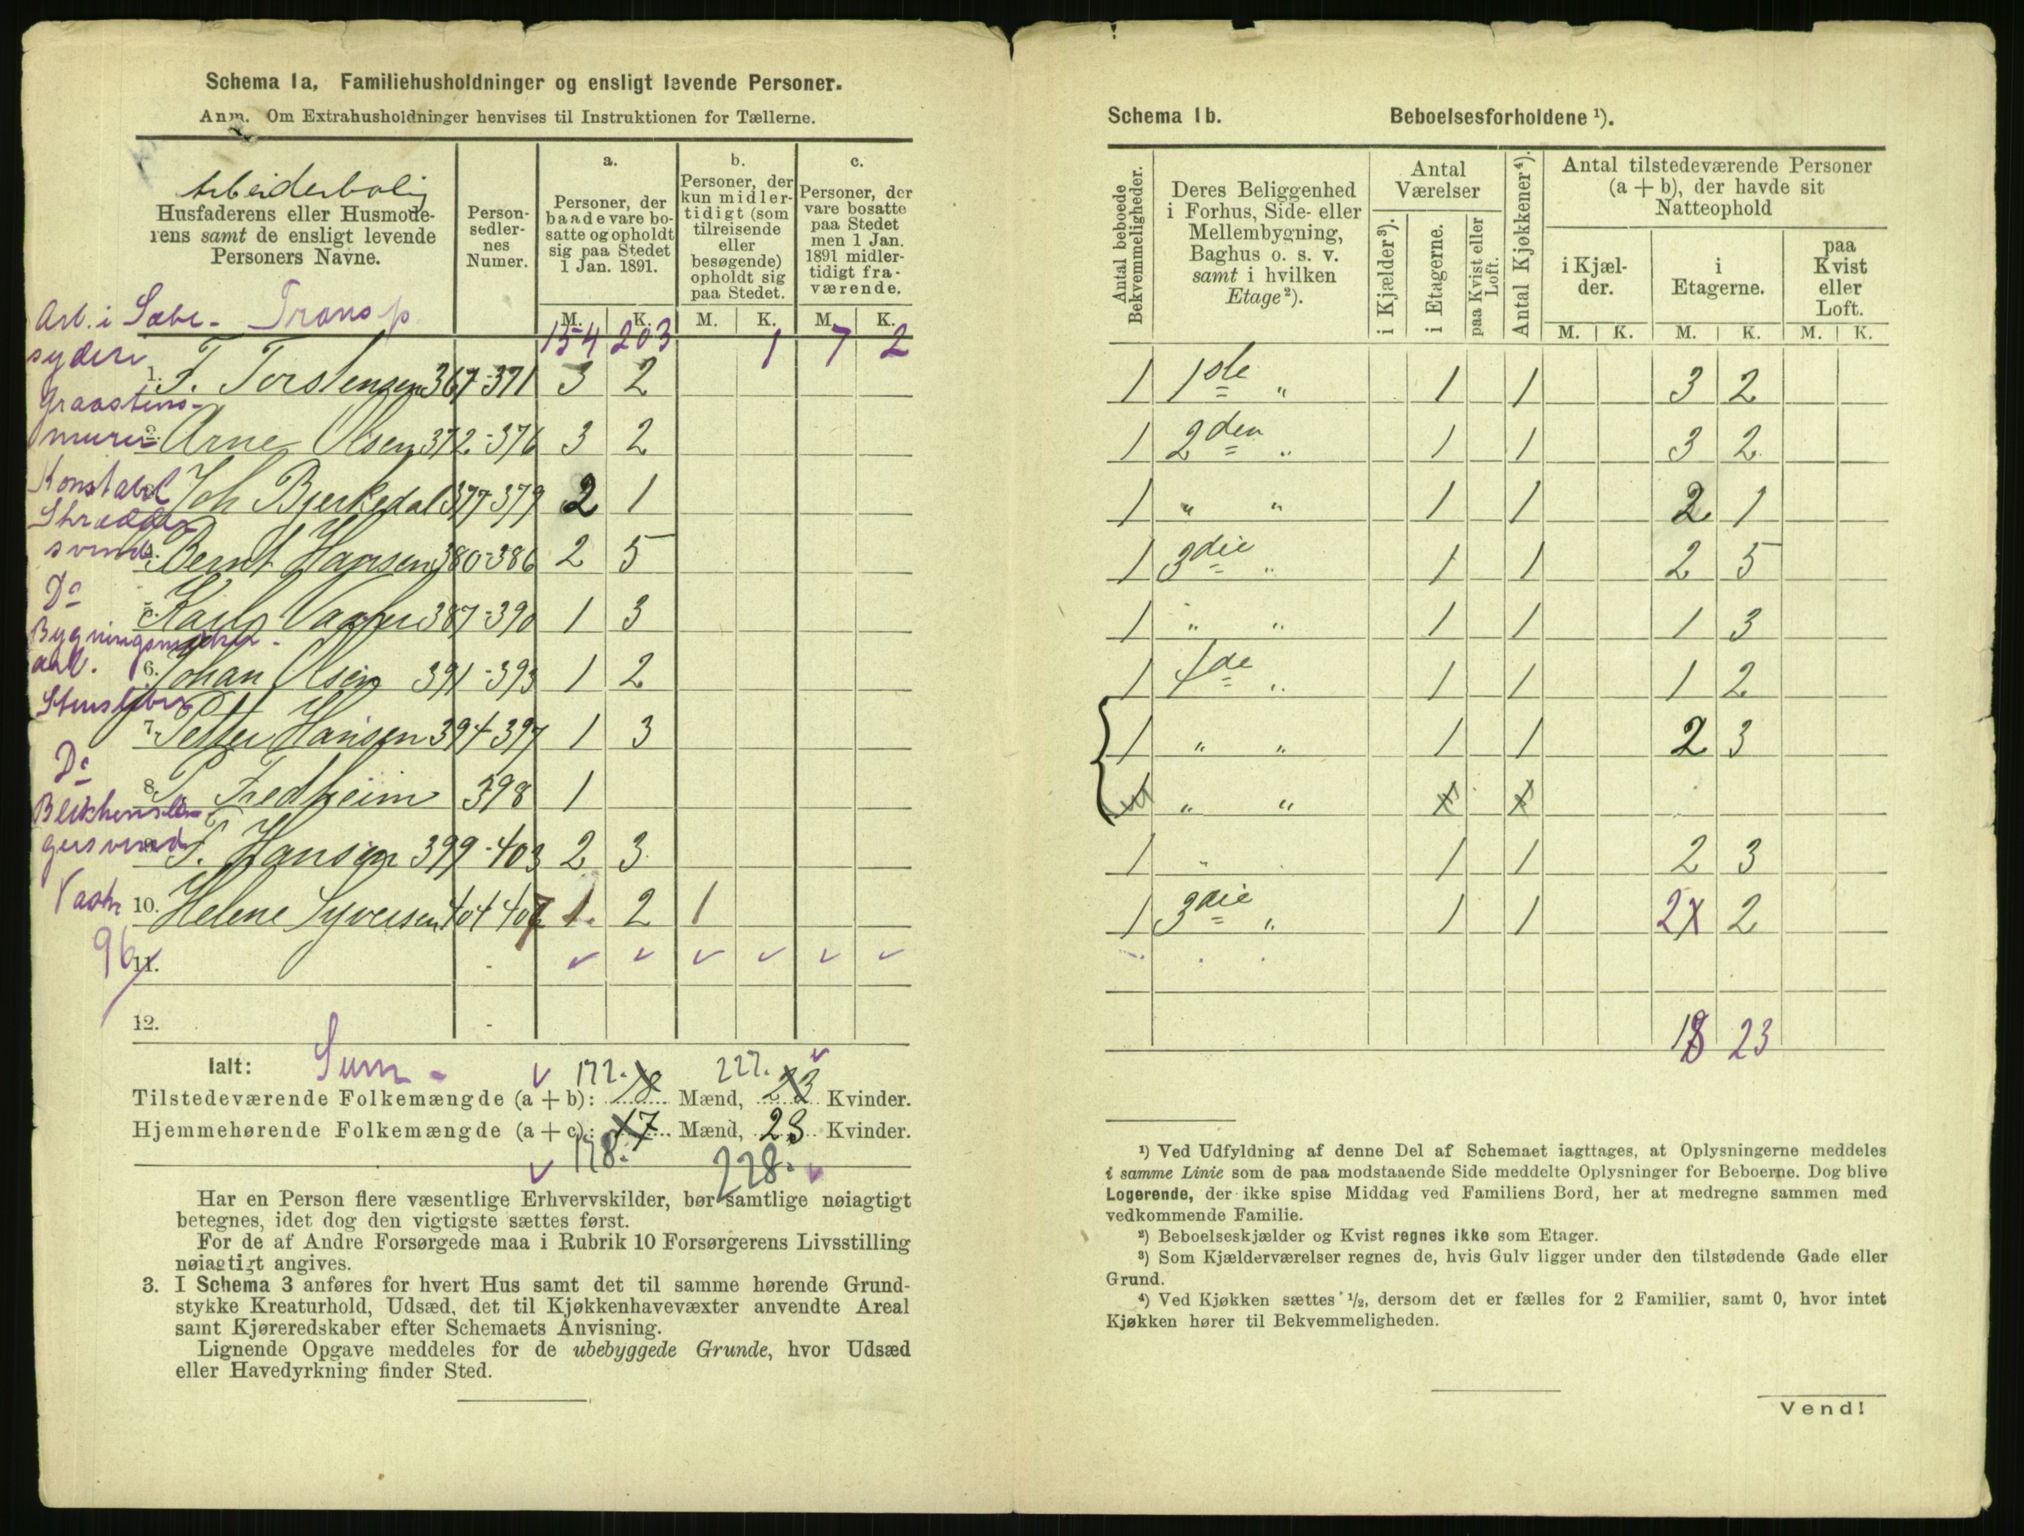 Schema 1a, Familiehusholdninger og ensligt levende Personer.
Anm. Om Extrahusholdninger henvises til Instruktionen for Tællerne.
Arbeiderbolig
Husfaderens eller Husmode-
rens samt de ensligt levende
Personers Navne.
Person-
sedler-
nes
Numer.
a.
Personer, der
baade vare bo-
satte og opholdt
sig paa Stedet
1 Jan. 1891.
b.
Personer, der
kun midler-
tidigt (som
tilreisende
eller
besøgende)
opholdt sig
paa Stedet.
c.
Personer, der
vare bosatte
paa Stedet
men 1 Jan.
1891 midler-
tidigt fra-
værende.
M. K. M. K. M. K.
Arb. i Sæbe- Transp. 154 203 1 7 2
syderi
1. F. Torstensen 367-371 3 2
Graastens-
murer 2. Arne Olsen 372-376 3 2
Konstabel 3. Joh Bjerkedal 377-379 2 1
Skrædder
svend 4. Bernt Hansen 380-386 2 5
Do 5. Karl 387-390 1 3
Bygningssnedker-
arb. 6. Johan Olsen 391-393 1 2
Stensliber 7. Petter Hansen 394-397 1 3
Do 8. P. Fredheim 398 1
Blikkensla-
gersvend 9. F. Hansen 399-403 2 3
Vask 10. Helene Syversen 404 407 1 2 1
96 11.
12.
Ialt: Sum - 172. 227.
Tilstedeværende Folkemængde (a + b): 18 Mænd, 23 Kvinder.
Hjemmehørende Folkemængde (a + c): 17 Mænd, 23 Kvinder.
178. 228.
Har en Person flere væsentlige Erhvervskilder, bør samtlige nøiagtigt
betegnes, idet dog den vigtigste sættes først.
For de af Andre Forsørgede maa i Rubrik 10 Forsørgerens Livsstilling
nøiagtigt angives.
3. I Schema 3 anføres for hvert Hus samt det til samme hørende Grund-
stykke Kreaturhold, Udsæd, det til Kjøkkenhavevæxter anvendte Areal
samt Kjøreredskaber efter Schemaets Anvisning.
Lignende Opgave meddeles for de ubebyggede Grunde, hvor Udsæd
eller Havedyrkning finder Sted.
Schema 1b. Beboelsesforholdene ¹).
Antal beboede
Bekvemmeligheder.
Deres Beliggenhed
i Forhus, Side- eller
Mellembygning,
Baghus o. s. v.
samt i hvilken
Etage ²).
Antal
Værelser
i Kjælder ³).
i Etagerne.
paa Kvist eller
Loft.
Antal Kjøkkener ⁴).
Antal tilstedeværende Personer
(a + b), der havde sit
Natteophold
i Kjæl-
der.
i
Etagerne.
paa
Kvist
eller
Loft.
M. K. M. K. M. K.
1 1ste „ 1 1 3 2
1 2den „ 1 1 3 2
1 „ „ 1 1 2 1
1 3die „ 1 1 2 5
1 „ „ 1 1 1 3
1 4de „ 1 1 1 2
1 „ „ 1 1 2 3
„ „
1 „ 1 1 2 3
1 3die „ 1 1 2 2
18 23
¹) Ved Udfyldning af denne Del af Schemaet iagttages, at Oplysningerne meddeles
i samme Linie som de paa modstaaende Side meddelte Oplysninger for Beboerne. Dog blive
Logerende, der ikke spise Middag ved Familiens Bord, her at medregne sammen med
vedkommende Familie.
²) Beboelseskjælder og Kvist regnes ikke som Etager.
³) Som Kjælderværelser regnes de, hvis Gulv ligger under den tilstødende Gade eller
Grund.
⁴) Ved Kjøkken sættes ¹/₂, dersom det er fælles for 2 Familier, samt 0, hvor intet
Kjøkken hører til Bekvemmeligheden.
Vend!